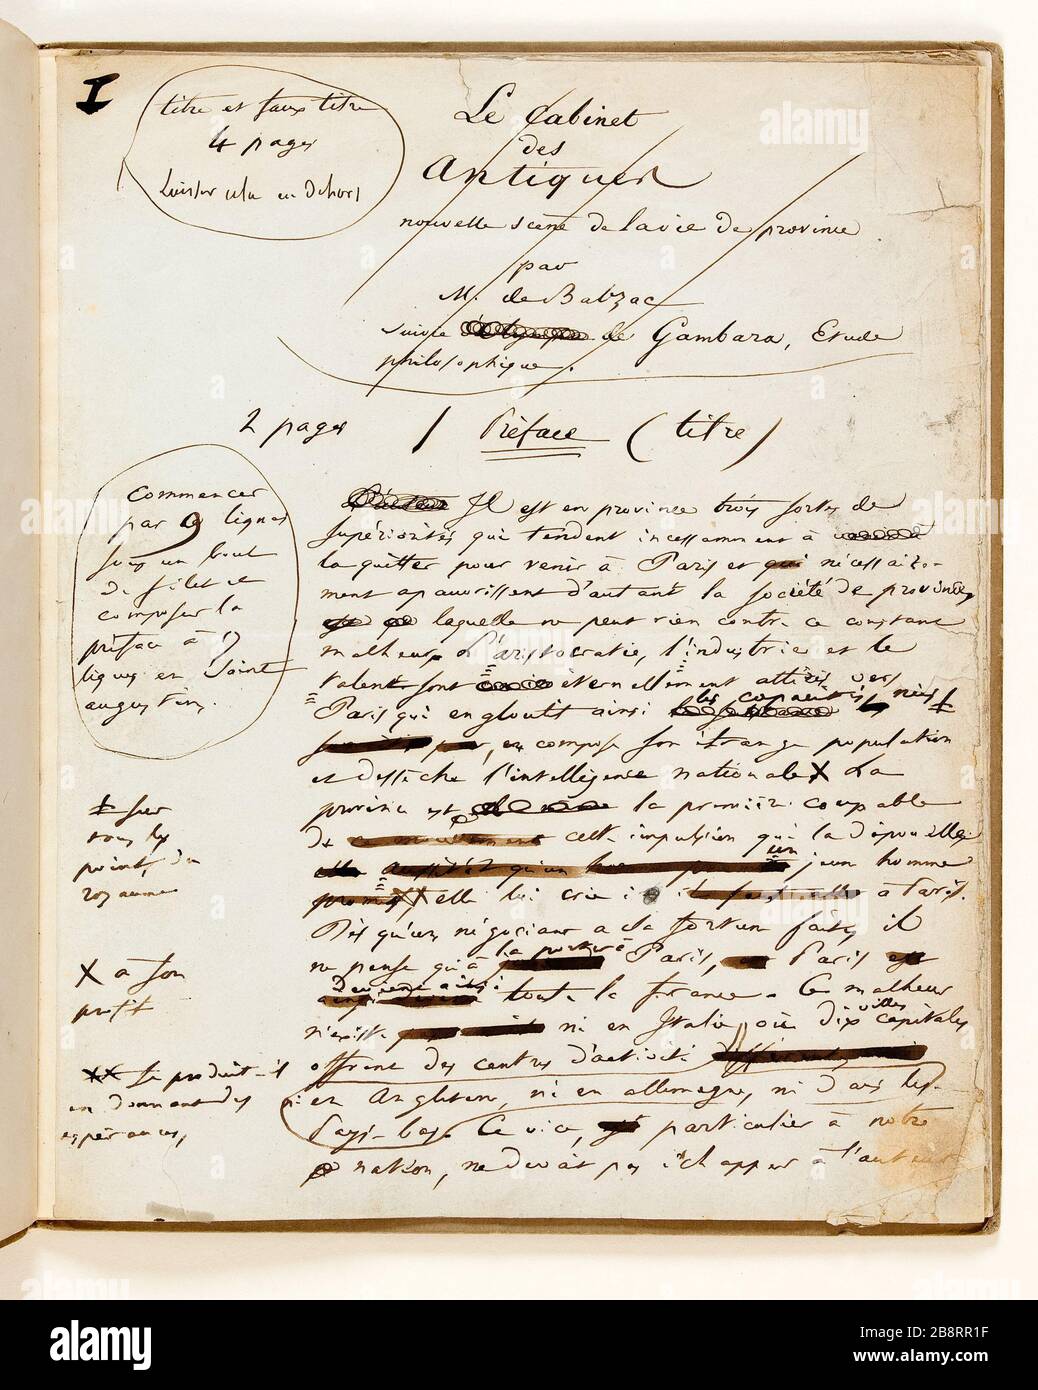 I
titre et faux titre
4 pages
laisser cela en dehors
Le Cabinet
des
Antiques
nouvelle scène de la vie de province
par
M. de Balzac
suivie de Gambara, Etude
philosophique.
2 pages / Préface (titre)
commencer
par 9 lignes
sous un bout
de filet et
composer la
préface à
lignes en Saint
augustin.
Il est en province trois sortes de
supériorités qui tendent incessamment à
la quitter pour venir à Paris et nécessaire-
ment apauvrissent d'autant la société de province,
laquelle ne peut rien contre ce constant
malheur. L'aristocratie, l'industrie et le
talent sont éternellement attirés vers
Paris qui engloutit ainsi les capacités nées ‡
en compose son étrange population
et dessèche l'intelligence nationale X La
province est la première coupable
de cette impulsion qui la dépouille.
un jeune homme
promis, XX elle lui crie : à Paris.
Dès qu'un négociant a sa fortune faite, il
ne pense qu'à la porter à Paris, Paris
devient ainsi toute la france. Ce malheur
n'existe ni en Italie, où dix villes capitales
offrent des centres d'activité
ni en Angleterre, ni en allemagne, ni dans les
Pays-bas. Ce vice, particulier à notre
nation, ne devait pas échapper à l'auteur
‡ sur
tous les
points du
royaume
X à son
profit
XX se produit-il
en donnant des
espérances,
alamy
Image ID: 2B8RR1F
www.alamy.com